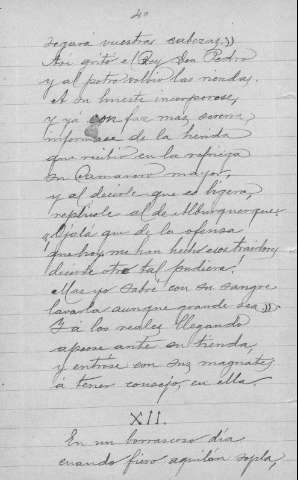 40
segará vuestras cabezas.»
Así gritó el Rey Don Pedro
y al potro volvió las riendas.
A su hueste incorporose,
y yá con faz más serena
informase de la herida
que recibió en la refriega
su Camarero mayor,
y al decirle que es ligera,
repúsole al de Alburquerque:
«Ojalá que de la ofensa
que hoy me han hecho esos traidores
decirte otro tal pudiera.
Mas yo sabré con su sangre
lavarla aunque grande sea».
Y a los reales llegando
apeose ante su tienda,
y entrose con sus magnates
á tener consejo, en ella.
XII.
En un borrascoso día
cuando fiero aquilón sopla,